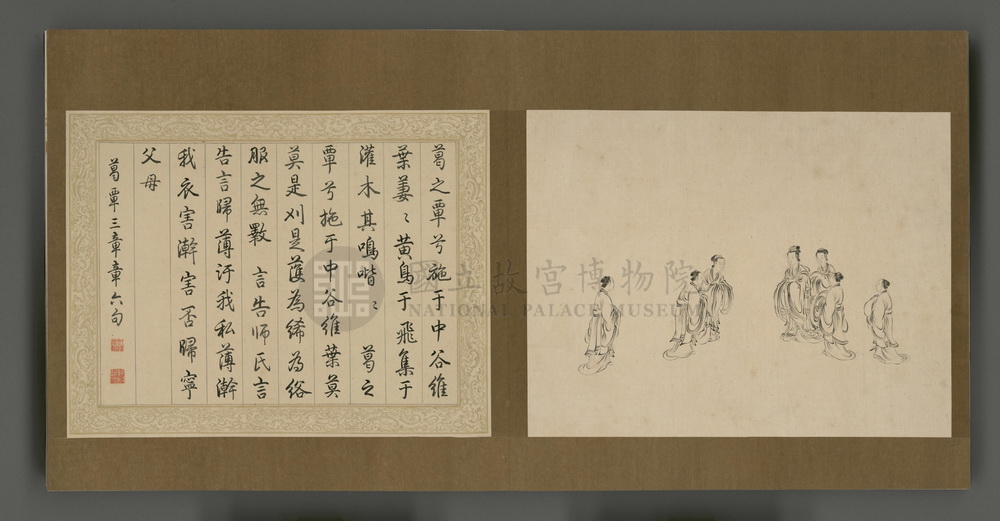 葛之覃兮施于中谷維
葉萋〻黃鳥于飛集于
灌木其鳴喈〻 葛之
覃兮施于中谷維葉莫
莫是刈是濩為絺為綌
服之無斁 言告師氏言
告言歸薄汙我私薄澣
我衣害澣害否歸寧
父母
葛覃三章章六句
國立故宮博物院
NATIONAL PALACE MUSEUM